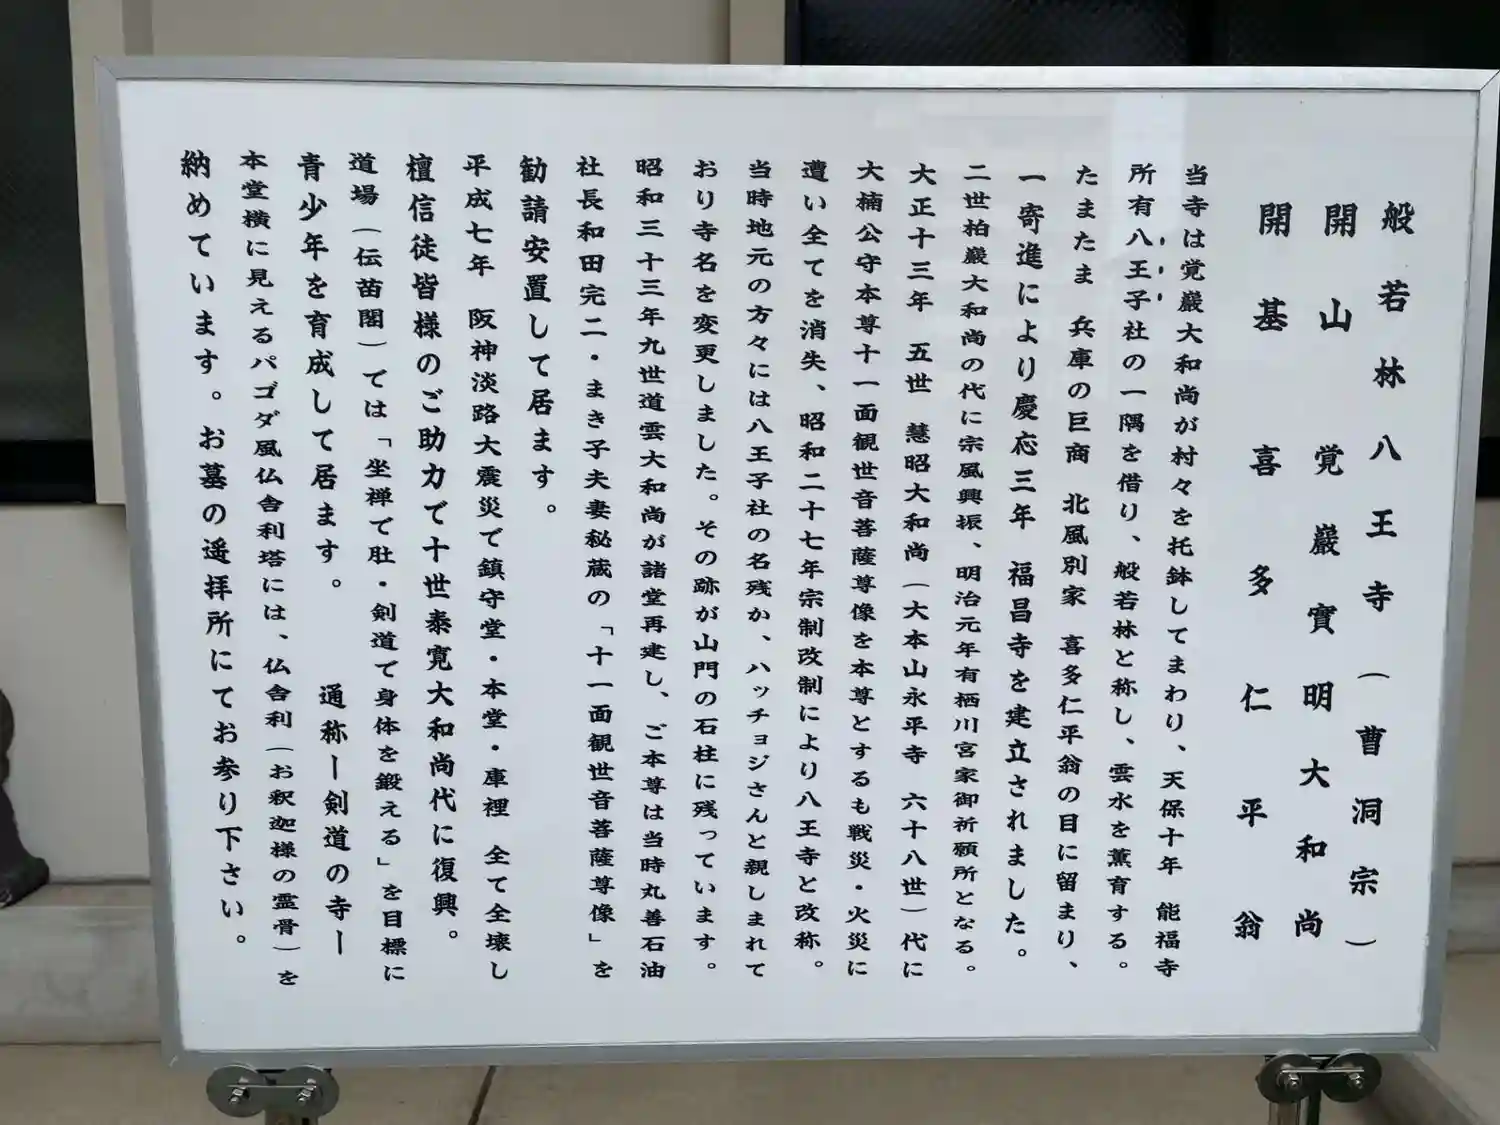 般若林八王寺(曹洞宗)
開山 覚巖實明大和尚
開基 喜多仁平翁
当寺は覚巖大和尚が村々を托鉢してまわり、天保十年 能福寺
所有八王子社の一隅を借り、般若林と称し、雲水を薫育する。
たまたま 兵庫の巨商 北風別家 喜多仁平翁の目に留まり、
一寄進により慶応三年 福昌寺を建立されました。
二世柏巖大和尚の代に宗風興振、明治元年有栖川宮家御祈願所となる。
大正十三年 五世 慧昭大和尚(大本山永平寺 六十八世)代に
大楠公守本尊十一面観世音菩薩尊像を本尊とするも戦災・火災に
遭い全てを消失、昭和二十七年宗制改制により八王寺と改称。
当時地元の方々には八王子社の名残か、ハッチョジさんと親しまれて
おり寺名を変更しました。その跡が山門の石柱に残っています。
昭和三十三年九世道雲大和尚が諸堂再建し、ご本尊は当時丸善石油
社長和田完二・まき子夫妻秘蔵の「十一面観世音菩薩尊像」を
勧請安置して居ます。
平成七年 阪神淡路大震災で鎮守堂・本堂・庫裡 全て全壊し
檀信徒皆様のご助力で十世泰寛大和尚代に復興。
道場(伝苗閣)では「坐禅で肚・剣道で身体を鍛える」を目標に
青少年を育成して居ます。 通称ー剣道の寺ー
本堂横に見えるパゴダ風仏舎利塔には、仏舎利(お釈迦様の霊骨)を
納めています。お墓の遥拝所にてお参り下さい。